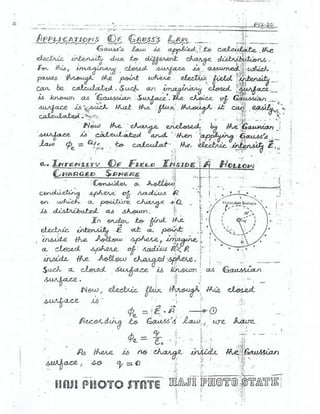 P12-20
APPLICATIONS OF GAUSS'S LAW
Gauss's law is applied to calculate the
electric intensity due to different charge distributions.
For this, imaginary closed surface is assumed which
passes through the point where electric field intensity
can be calculated. Such an imaginary closed surface
is known as Gaussian Surface. The choice of Gaussian
surface is such that the flux through it can easily
calculated.
Now the charge enclosed by the Gaussian
surface is calculated and then applying Gauss's
law ϕe = Q/ε₀ to calculate the electric intensity E.
a. INTENSITY OF FIELD INSIDE A HOLLOW
CHARGED SPHERE
Consider a hollow
conducting sphere of radius R
on which a positive charge +Q
is distributed as shown.
In order to find the
electric intensity E at a point
inside the hollow sphere, imagine
a closed sphere of radius R'<R
inside the hollow charged sphere.
Such a closed surface is known as Gaussian
surface.
Now, electric flux through this closed
surface is
ϕe = E · A → ①
According to Gauss's law, we have
ϕe = q/ε₀
As there is no charge inside the Gaussian
surface, so q = 0
HAJI PHOTO STATE HAJI PHOTO STATE